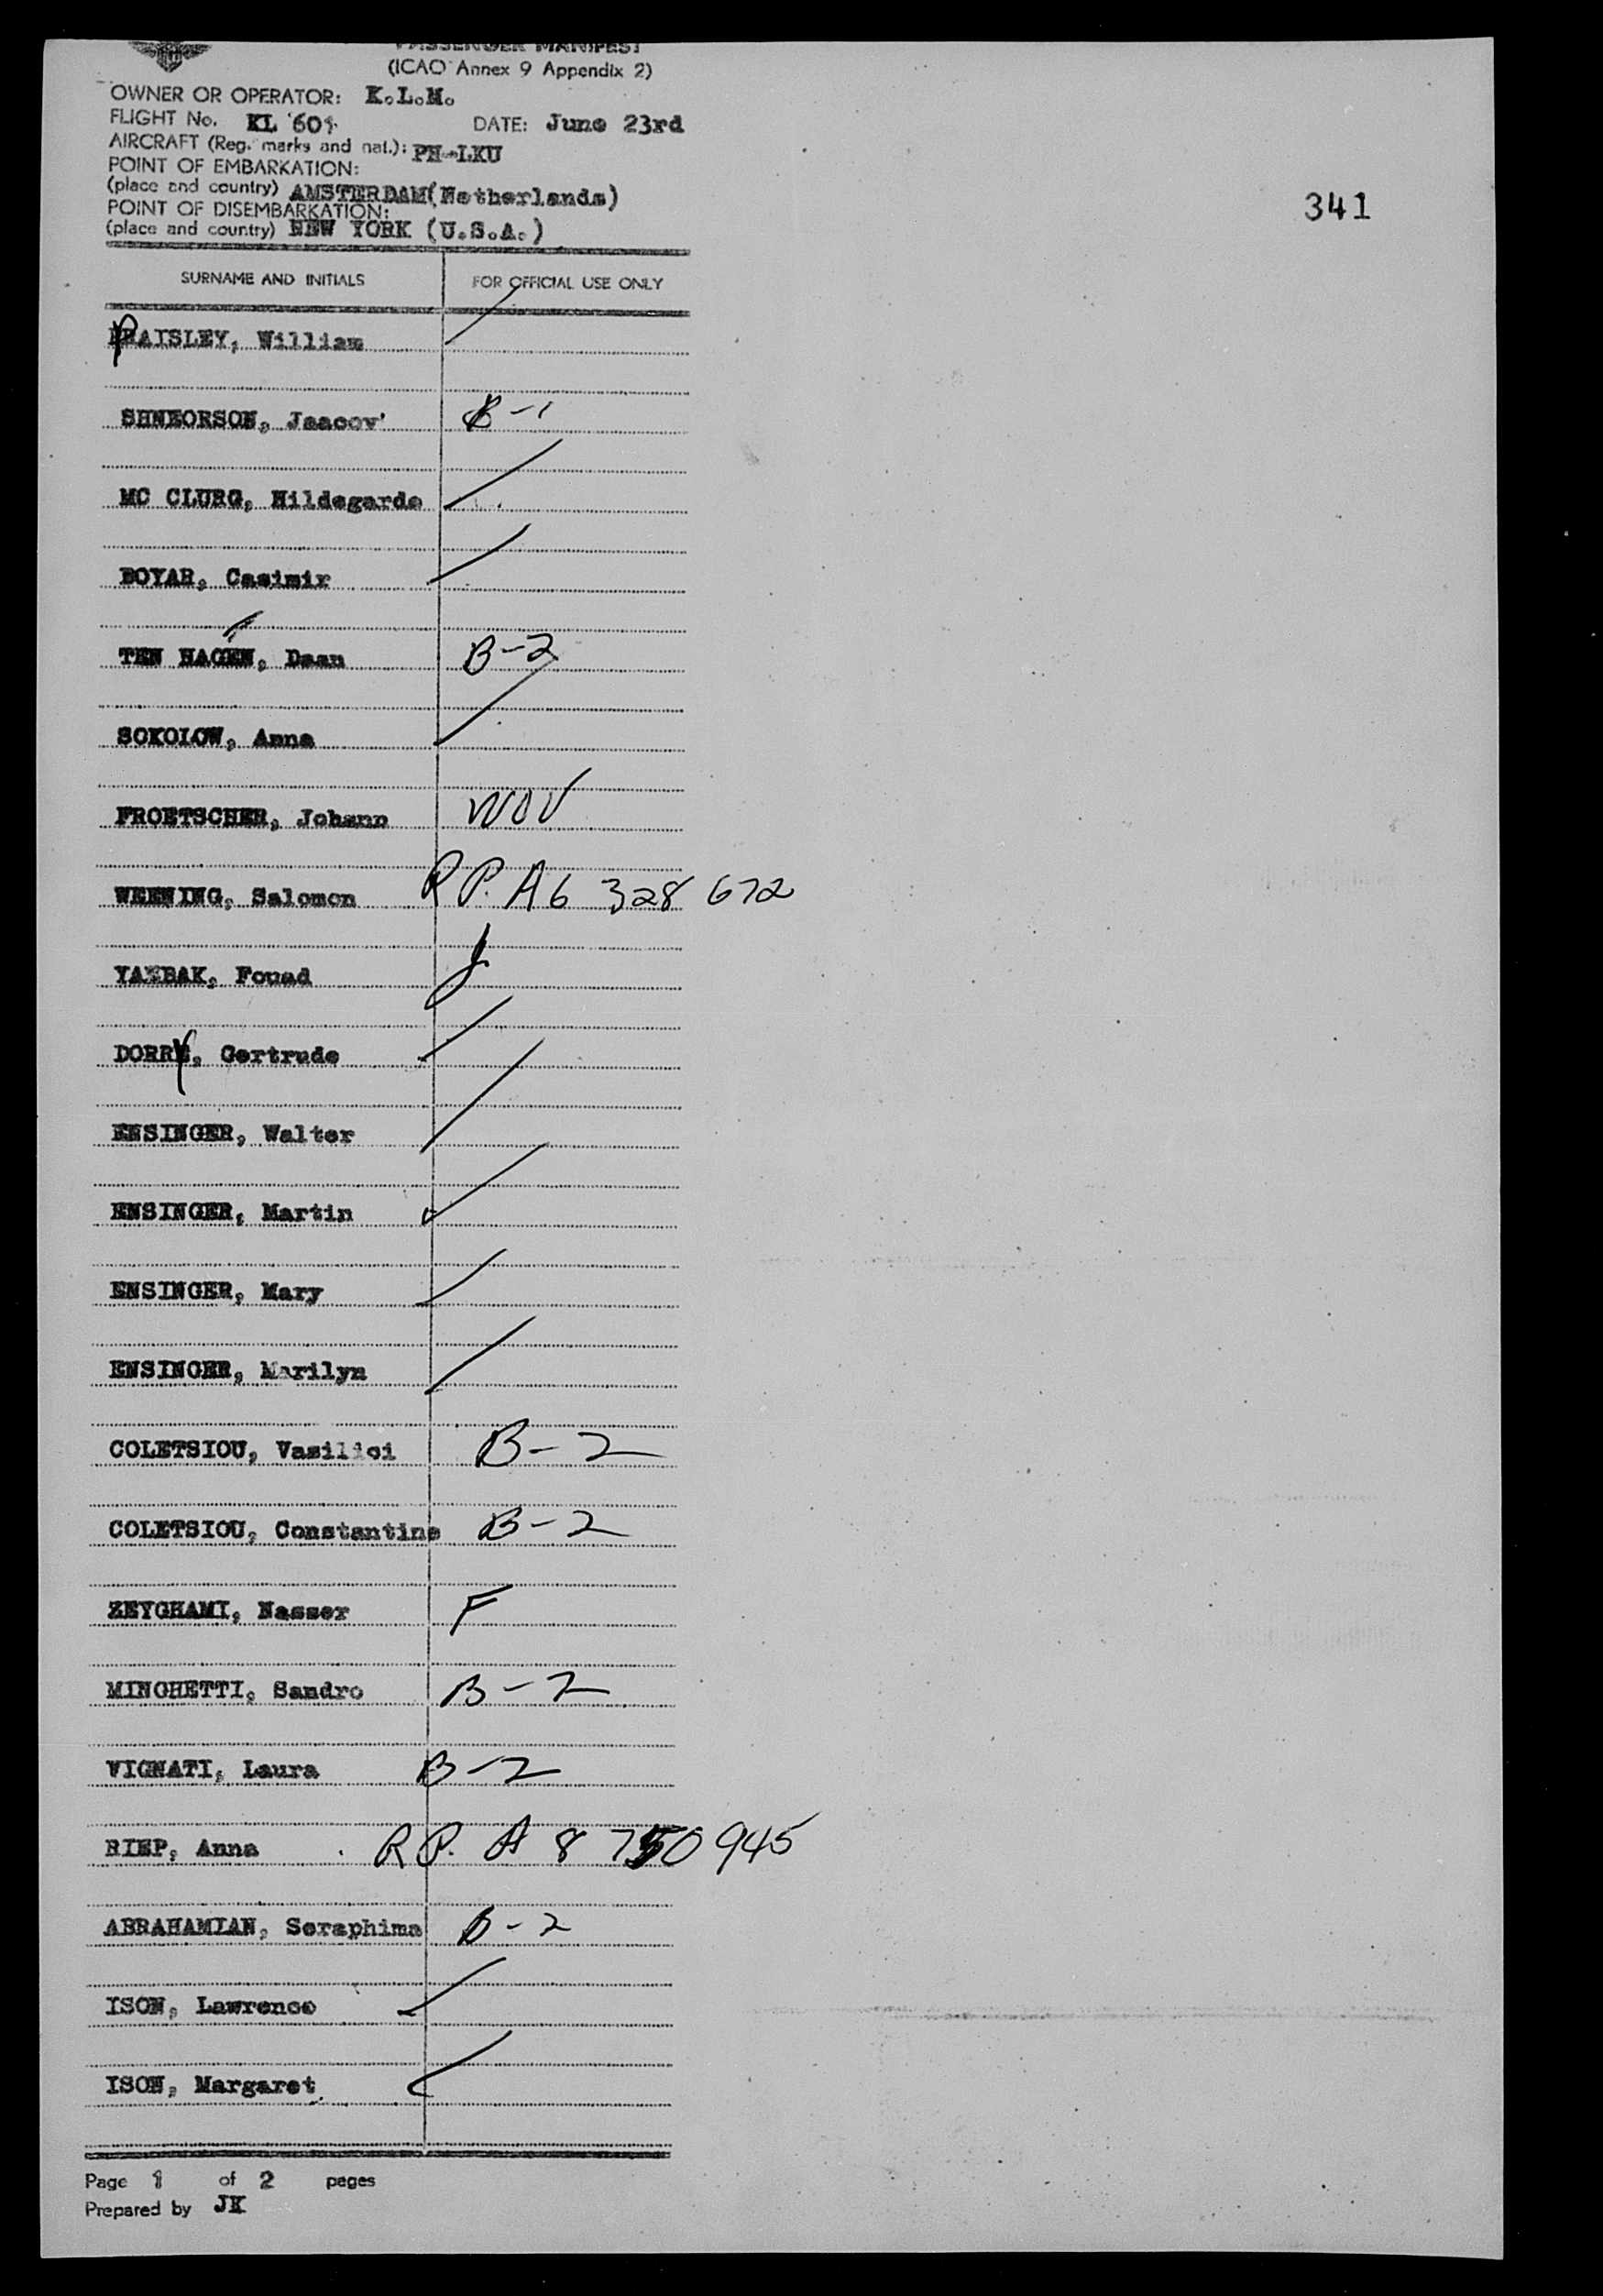 PASSENGER MANIFEST
(ICAO Annex 9 Appendix 2)
OWNER OR OPERATOR: K.L.M.
FLIGHT No. KL 601 DATE: June 23rd
AIRCRAFT (Reg. marks and nat.): PH-LKU
POINT OF EMBARKATION:
(place and country) AMSTERDAM(Netherlands)
POINT OF DISEMBARKATION:
(place and country) NEW YORK (U.S.A.)
341
SURNAME AND INITIALS FOR OFFICIAL USE ONLY
PAISLEY, William
SHNEORSON, Jaacov B-1
MC CLURG, Hildegarde
BOYAR, Casimir
TEN HAGEN, Daan B-2
SOKOLOW, Anna
FROETSCHER, Johann
WEENING, Salomon RP. A6 328 672
YAZBAK, Fouad
DORRY, Gertrude
ENSINGER, Walter
ENSINGER, Martin
ENSINGER, Mary
ENSINGER, Marilyn
COLETSIOU, Vasilici B-2
COLETSIOU, Constantine B-2
ZEYGHAMI, Nasser F
MINGHETTI, Sandro B-2
VIGNATI, Laura B-2
RIEP, Anna RP. A 8 750 945
ABRAHAMIAN, Seraphima B-2
ISON, Lawrence
ISON, Margaret
Page 1 of 2 pages
Prepared by JK